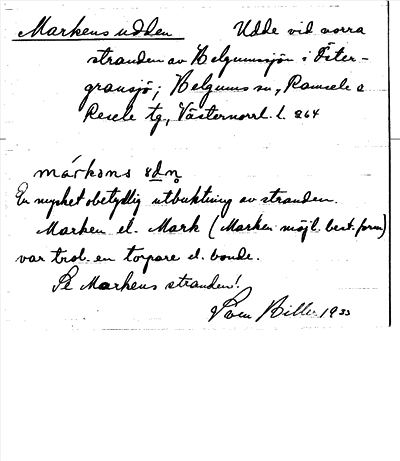 Markens udden Udde vid norra
stranden av Helgumssjön i Öster-
gransjö; Helgums sn, Ramsele o
Resele tg, Västernorrl. l. 264
márkens
En mycket obetydlig utbuktning av stranden.
Marken el. Mark (Marken möjl. best. form)
var trol. en torpare el. bonde.
Se Markens stranden!
Sven Biller 1933